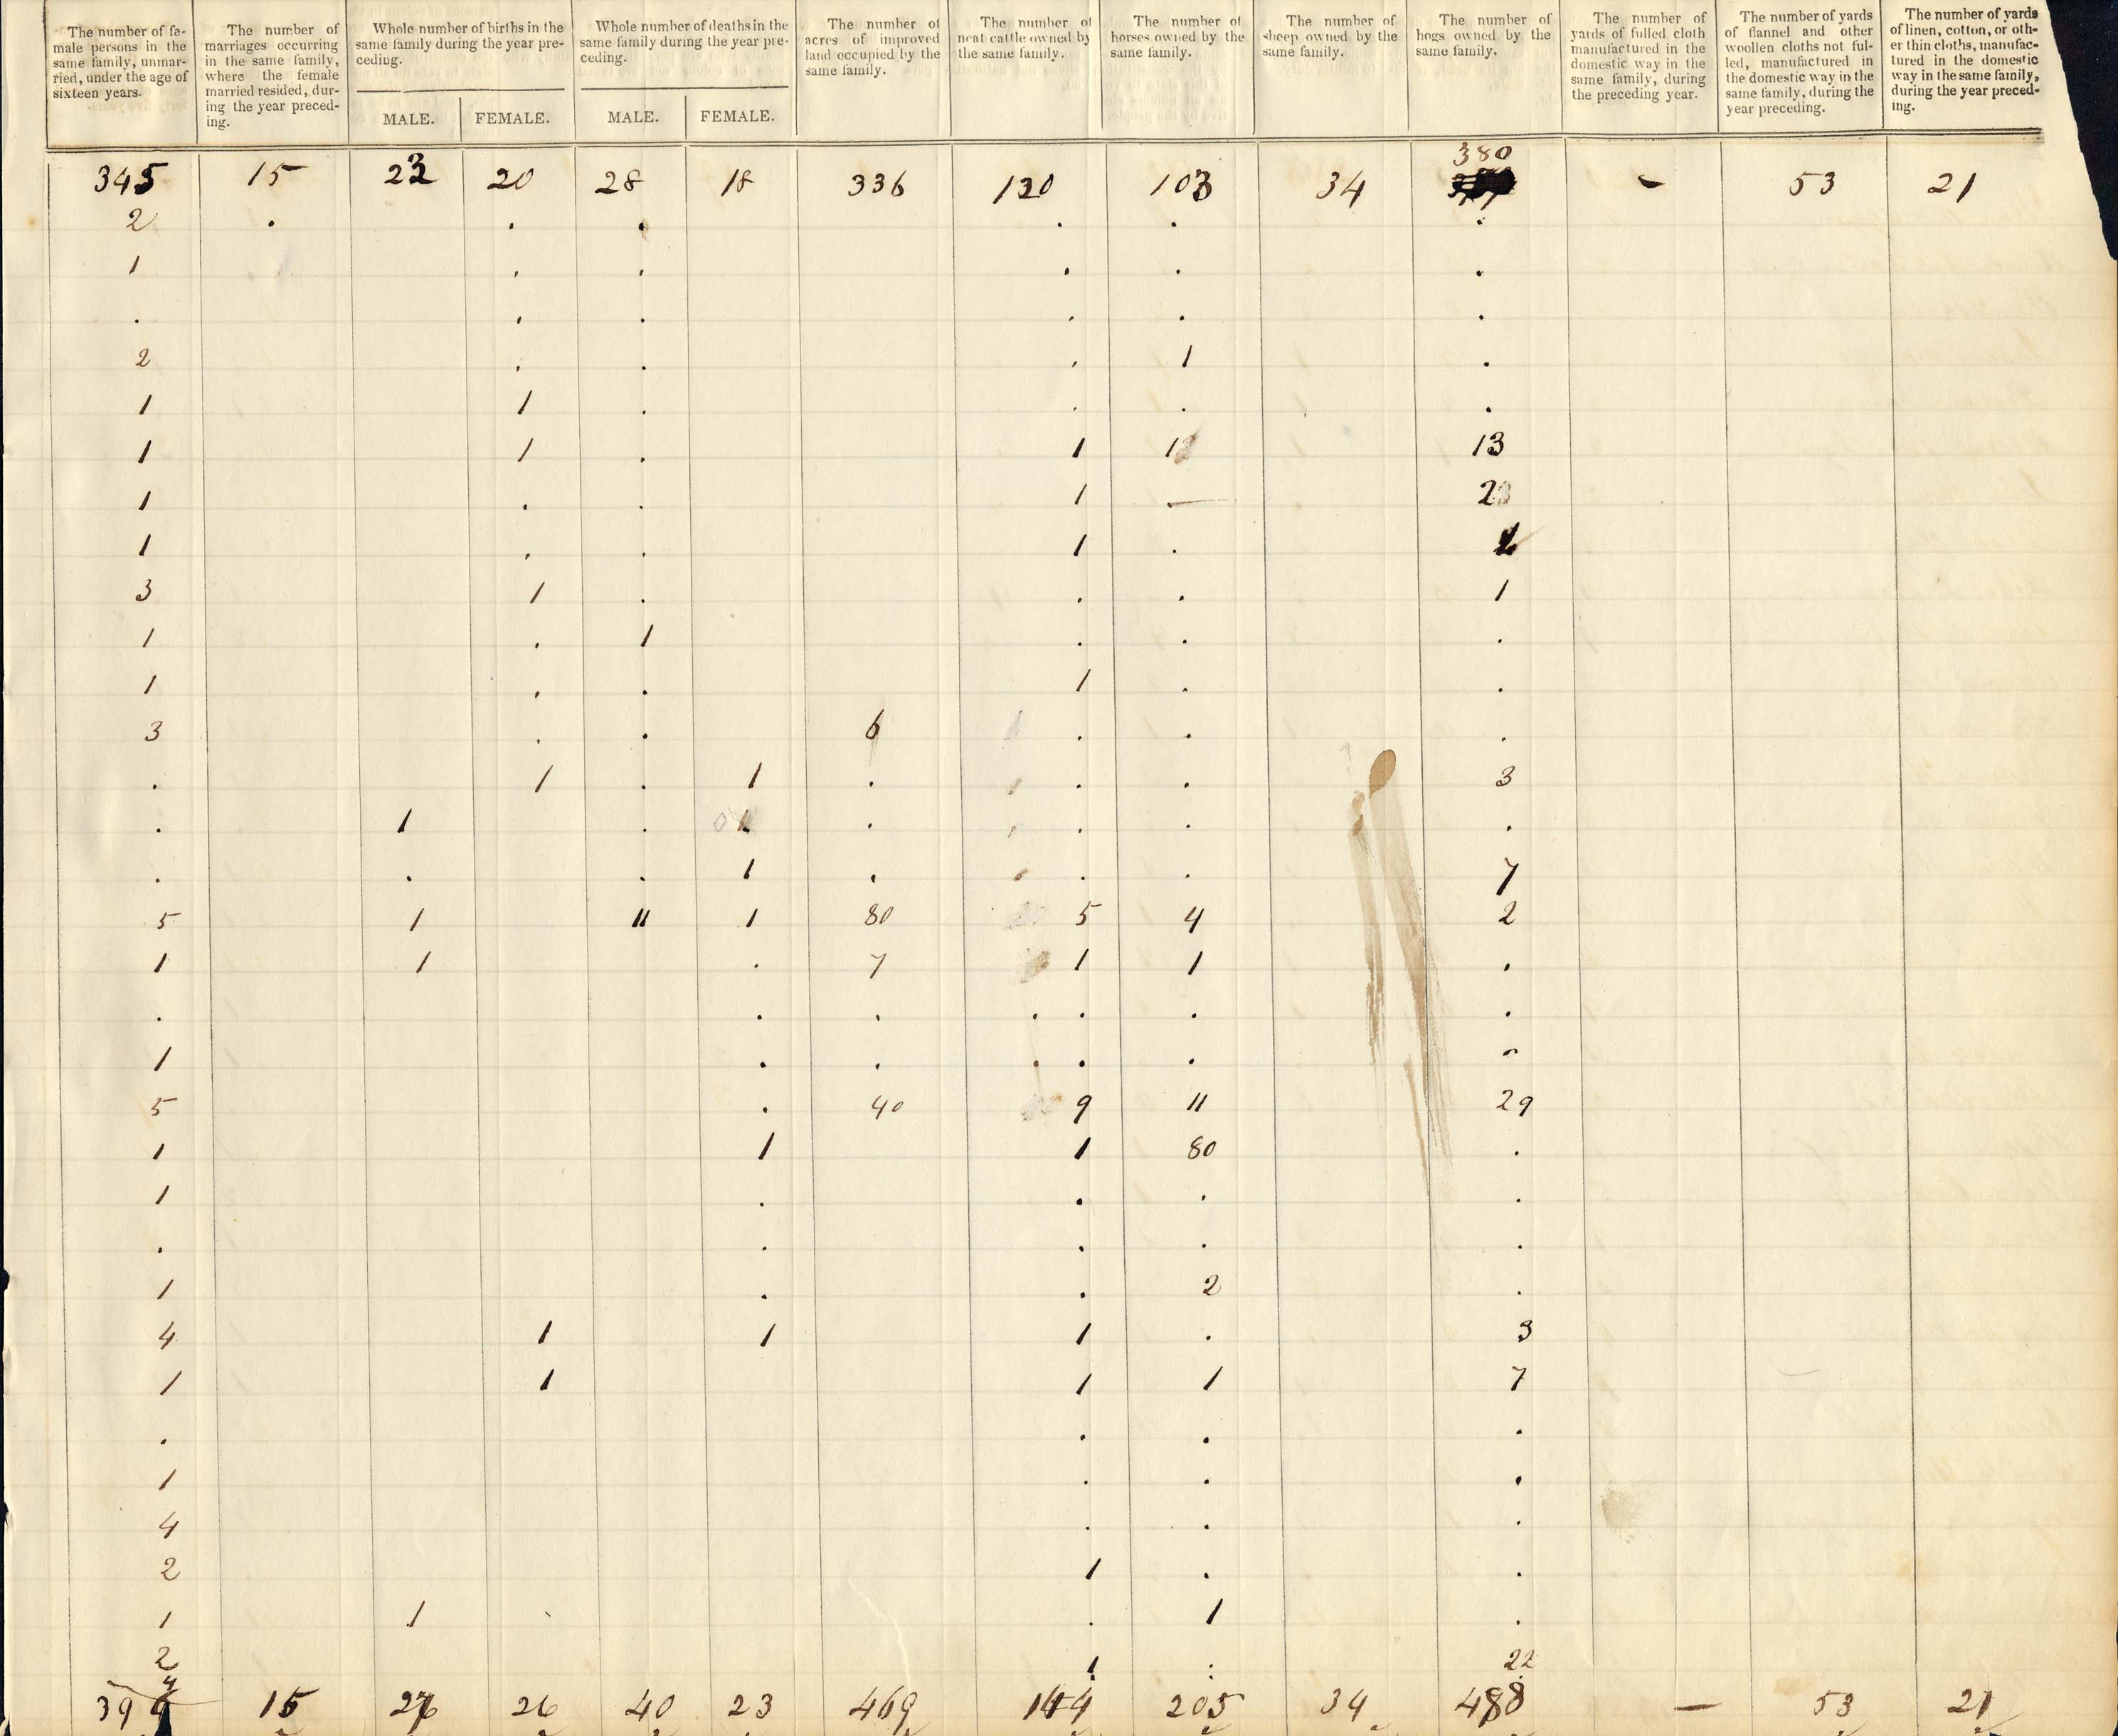 The number of fe-
male persons in the
same family, unmar-
ried, under the age of
sixteen years.
The number of
marriages occurring
in the same family,
where the female
married resided, dur-
ing the year preced-
ing.
Whole number of births in the
same family during the year pre-
ceding.
MALE. FEMALE.
Whole number of deaths in the
same family during the year pre-
ceding.
MALE. FEMALE.
The number of
acres of improved
land occupied by the
same family.
The number of
neat cattle owned by
the same family.
The number of
horses owned by the
same family.
The number of
sheep owned by the
same family.
The number of
hogs owned by the
same family.
The number of
yards of fulled cloth
manufactured in the
domestic way in the
same family, during
the preceding year.
The number of yards
of flannel and other
woollen cloths not ful-
led, manufactured in
the domestic way in the
same family, during the
year preceding.
The number of yards
of linen, cotton, or oth-
er thin cloths, manufac-
tured in the domestic
way in the same family,
during the year preced-
ing.
380
345 15 23 20 28 18 336 120 103 34 - 53 21
2 . . . . . .
1 . . . . .
. . . . . .
2 . . . 1 .
1 1 . . . .
1 1 . 1 1 13
1 . . 1 — 23
1 . . 1 .
3 1 . . . 1
1 . 1 . . .
1 . . 1 . .
3 . . 6 . . .
. 1 . 1 . . . 3
. 1 . 1 . . . .
. . . 1 . . . 7
5 1 11 1 80 5 4 2
1 1 . 7 1 1 .
. . . . . . .
1 . . . . . -
5 . 40 9 11 29
1 1 1 80 .
1 . . . .
. . . . .
1 . . 2 .
4 1 1 1 . 3
1 1 1 1 7
. . . .
1 . . .
4 . . .
2 1 . .
1 1 . 1 .
2 1 . 22
394 15 26 40 23 469 144 205 34 488 — 53 21